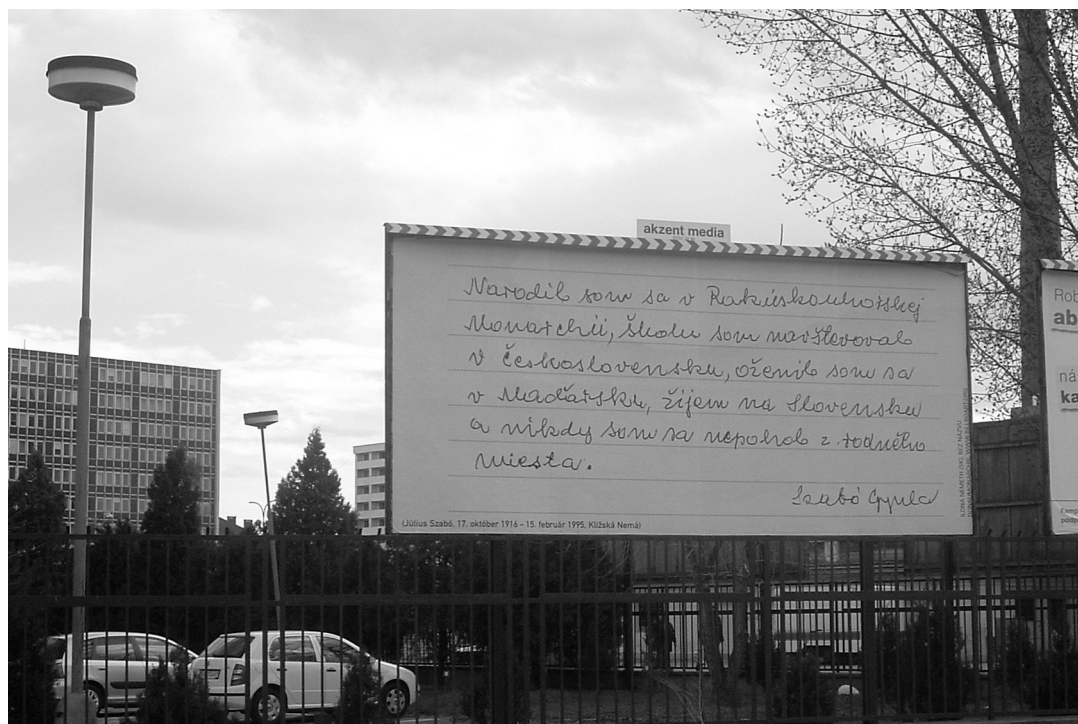 akzent media
Narodil som sa v Rakúskouhorskej
Monarchii, školu som navštevoval
v Československu, oženil som sa
v Maďarsku, žijem na Slovensku
a nikdy som sa nepohol z rodného
miesta.
Szabó Gyula
(Július Szabó, 17. október 1916 - 15. február 1995, Kližská Nemá)
ILONA NÉMETH (SK), BEZ NÁZVU
Rob
ab
ná
ka